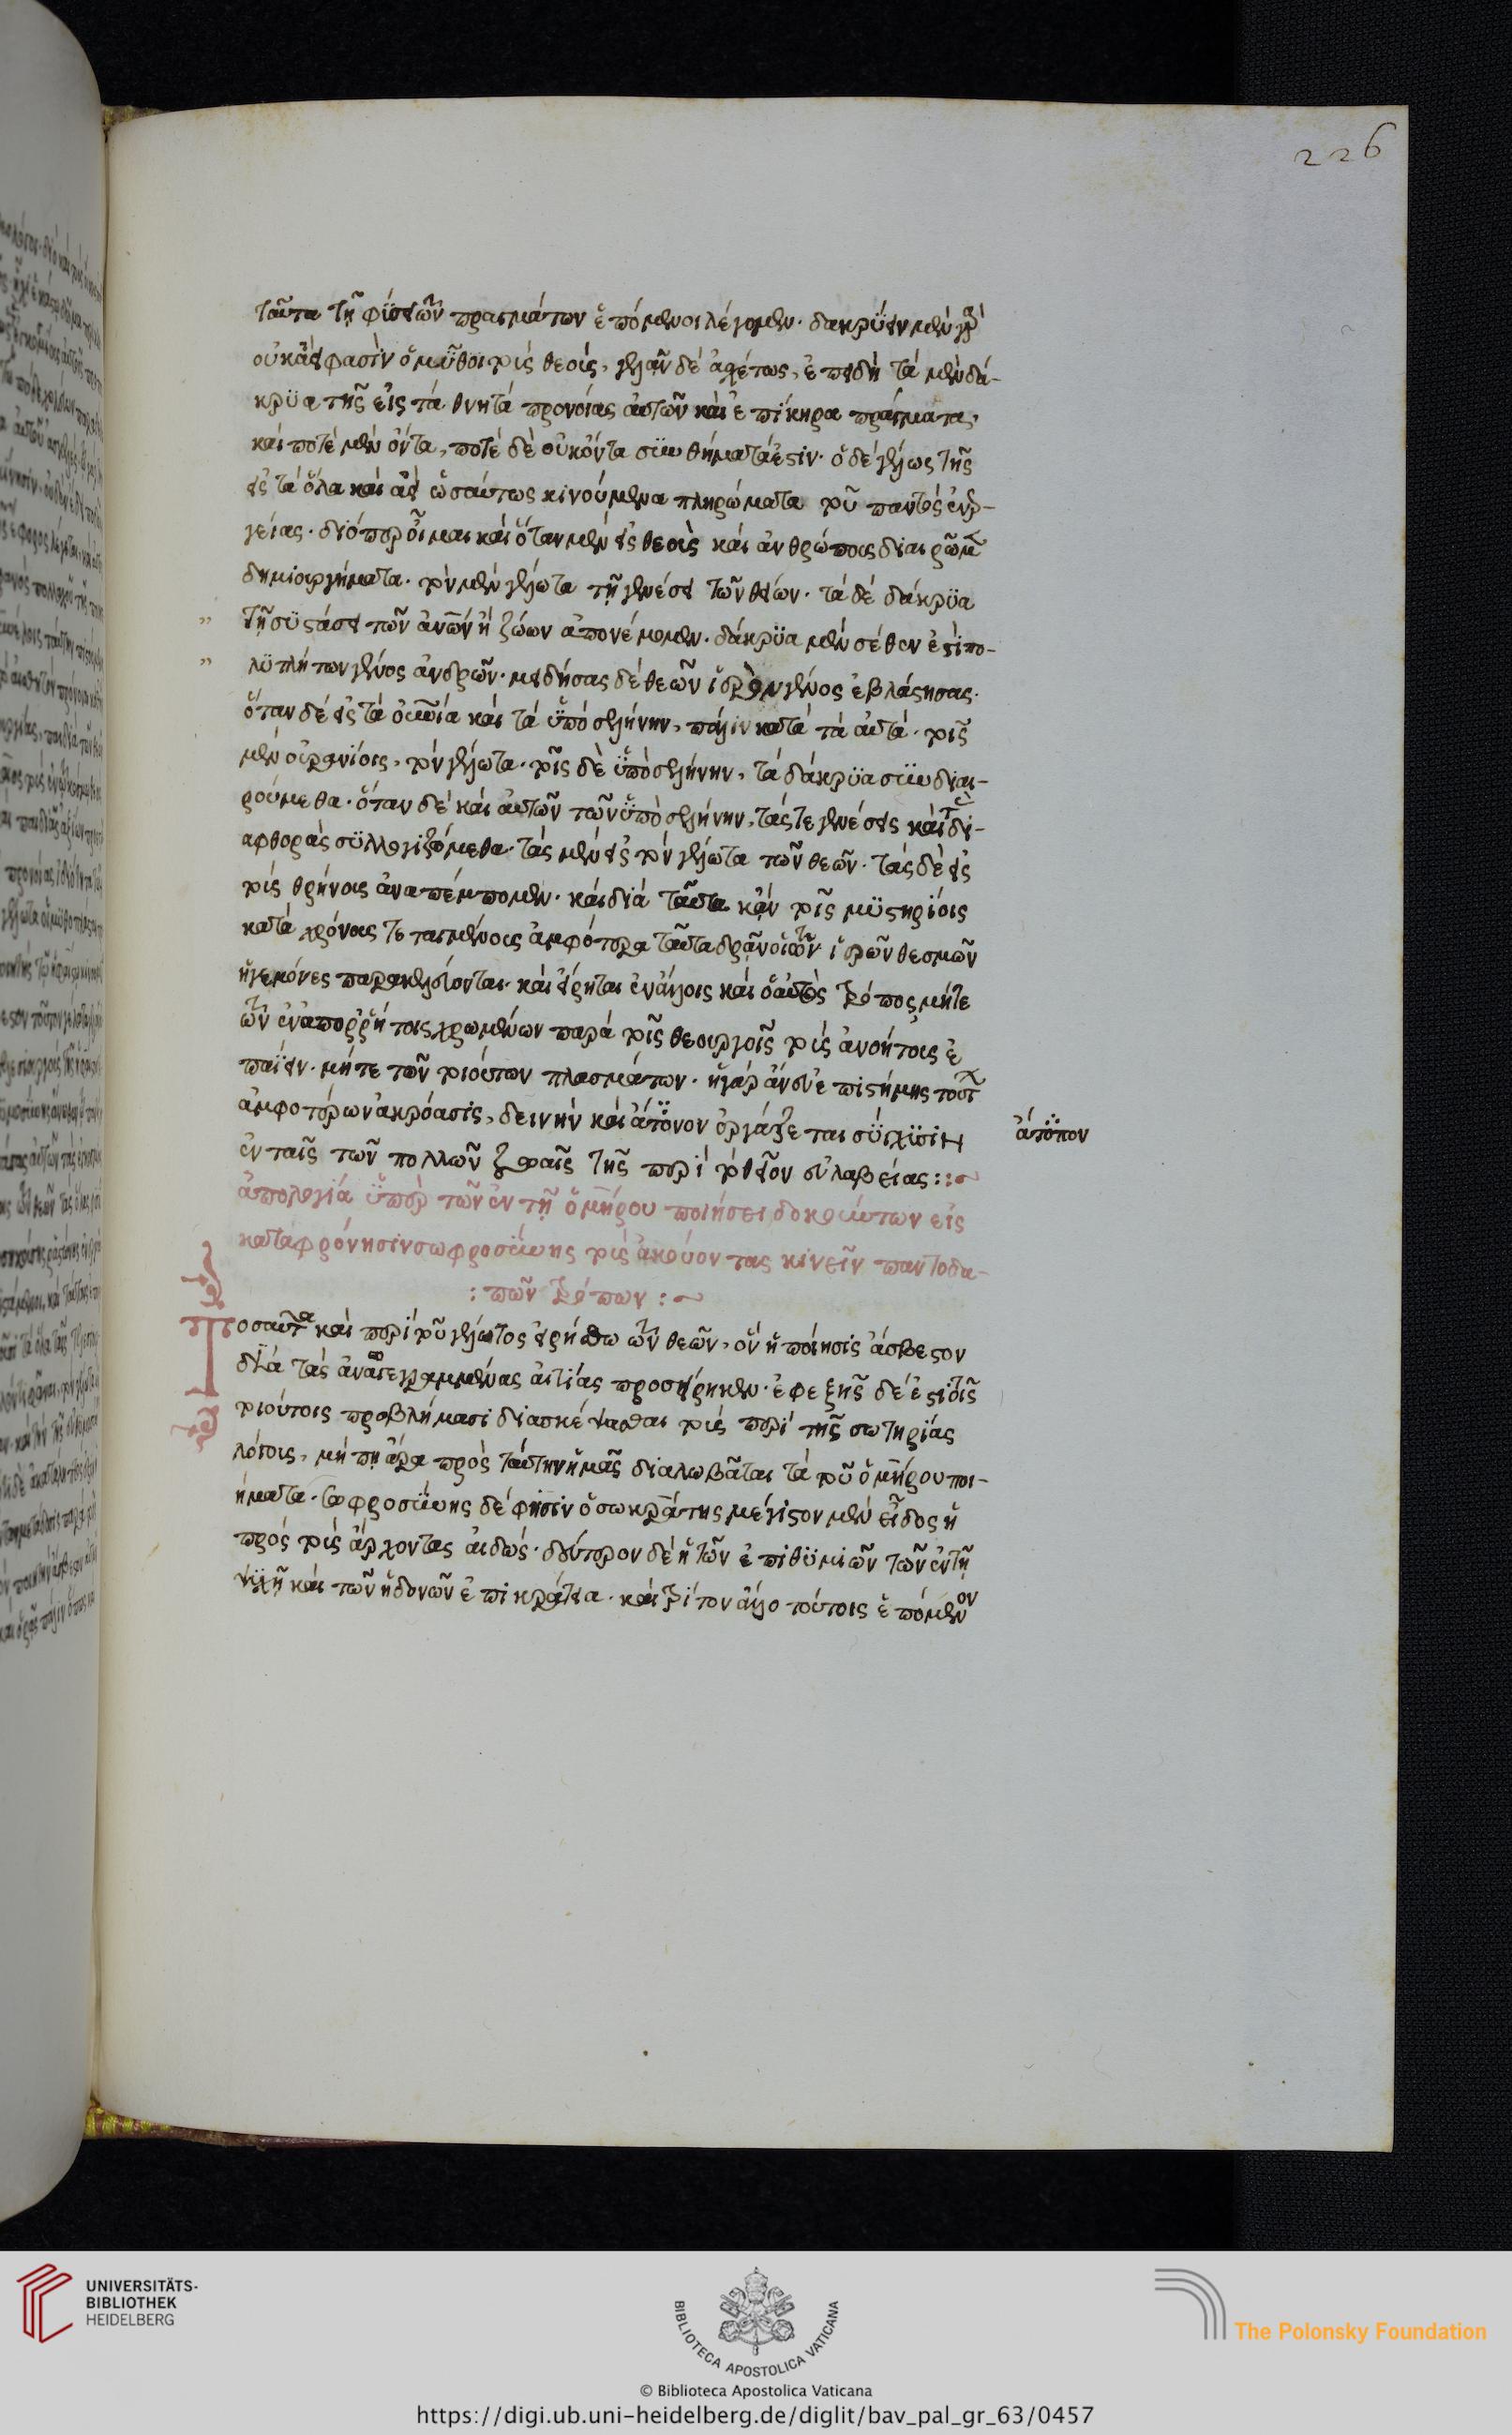 226
ταῦτα τῇ φύσει τῶν πραγμάτων ἑπόμενοι λέγομεν. δακρύειν μὲν γὰρ
οὐκ ἀεί φασὶν ὁι μῦθοι τοὺς θεοὺς, γελᾶν δὲ ἀσχέτως, ἐπειδὴ τὰ μὲν δά-
κρυα τῆς εἰς τὰ θνητὰ προνοίας αὐτῶν καὶ ἐπίκηρα πράγματα,
καὶ ποτὲ μὲν ὄντα, ποτὲ δὲ οὐκ ὄντα συνθήματά ἐστιν. ὁ δὲ γέλως τῆς
εἰς τὰ ὅλα καὶ ἀεὶ ὡσαύτως κινούμενα πληρώματα τοῦ παντὸς ἐνερ-
γείας. διόπερ οἶμαι καὶ ὅταν μὲν εἰς θεοὺς καὶ ἀνθρώπους διαιρῶμεν
δημιουργήματα. τὸν μὲν γέλωτα τῇ γενέσει τῶν θείων. τὰ δὲ δάκρυα
τῇ συστάσει τῶν ἀνων ἢ ζώων ἀπονέμομεν. δάκρυα μὲν σέθεν ἐστὶ πο-
λυτλήτων γένος ἀνδρῶν. μειδήσας δὲ θεῶν ἱερὸν γένος ἐβλάστησας.
ὅταν δὲ εἰς τὰ οὐνια καὶ τὰ ὑπὸ σελήνην, πάλιν κατὰ τὰ αὐτὰ. τοῖς
μὲν οὐρανίοις, τὸν γέλωτα. τοῖς δὲ ὑπὸ σελήνην, τὰ δάκρυα συνδιαι-
ρούμεθα. ὅταν δὲ καὶ αὐτῶν τῶν ὑπὸ σελήνην, τάς τε γενέσεις καὶ τὰς δι-
αφθορὰς συλλογιζόμεθα. τὰς μὲν εἰς τὸν γέλωτα τῶν θεῶν. τὰς δὲ εἰς
τοὺς θρήνους ἀναπέμπομεν. καὶ διὰ ταῦτα κἀν τοῖς μυστηρίοις
κατὰ χρόνους τεταγμένους ἀμφότερα ταῦτα δρᾶν οἱ τῶν ἱερῶν θεσμῶν
ἡγεμόνες παρακελεύονται. καὶ εἴρηται ἐν ἄλλοις καὶ ὁ αὐτὸς τρόπος μήτε
τῶν ἐν ἀπορρήτοις χρωμένων παρὰ τοῖς θεουργοῖς τοὺς ἀνοήτους ἐ
παΐειν. μήτε τῶν τοιούτων πλασμάτων. ἡ γὰρ ἄνευ ἐπιστήμης τούτων
ἀμφοτέρων ἀκρόασις, δεινὴν καὶ ἄτονον ἐργάζεται σύγχυσιν
ἄτοπον
ἐν ταῖς τῶν πολλῶν ζωαῖς τῆς περὶ τὸ θεῖον εὐλαβείας ::~
ἀπολογία ὑπὲρ τῶν ἐν τῇ ὁμήρου ποιήσει δοκούντων εἰς
καταφρόνησιν σωφροσύνης τοὺς ἀκούοντας κινεῖν παντοδα-
: πῶν τρόπων : ~
Τοσαῦτα καὶ περὶ τοῦ γέλωτος εἰρήσθω τῶν θεῶν, ὃν ἡ ποίησις ἄσβεστον
διὰ τὰς ἀναγεγραμμένας αἰτίας προσείρηκεν. ἐφεξῆς δέ ἐστι τοῖς
τοιούτοις προβλήμασι διασκέψασθαι τοὺς περὶ τῆς σωτηρίας
λόγους, μή πῃ ἄρα πρὸς ταύτην ἡμᾶς διαλωβᾶται τὰ τοῦ ὁμήρου ποι-
ήματα. σωφροσύνης δέ φησιν ὁ σωκράτης μέγιστον μὲν εἶδος ἡ
πρὸς τοὺς ἄρχοντας αἰδώς. δεύτερον δὲ ἡ τῶν ἐπιθυμιῶν τῶν ἐν τῇ
ψυχῇ καὶ τῶν ἡδονῶν ἐπικράτεια. καὶ τρίτον ἄλλο τούτοις ἑπόμενον
UNIVERSITÄTS-
BIBLIOTHEK
HEIDELBERG
BIBLIOTECA APOSTOLICA VATICANA
The Polonsky Foundation
© Biblioteca Apostolica Vaticana
https://digi.ub.uni-heidelberg.de/diglit/bav_pal_gr_63/0457